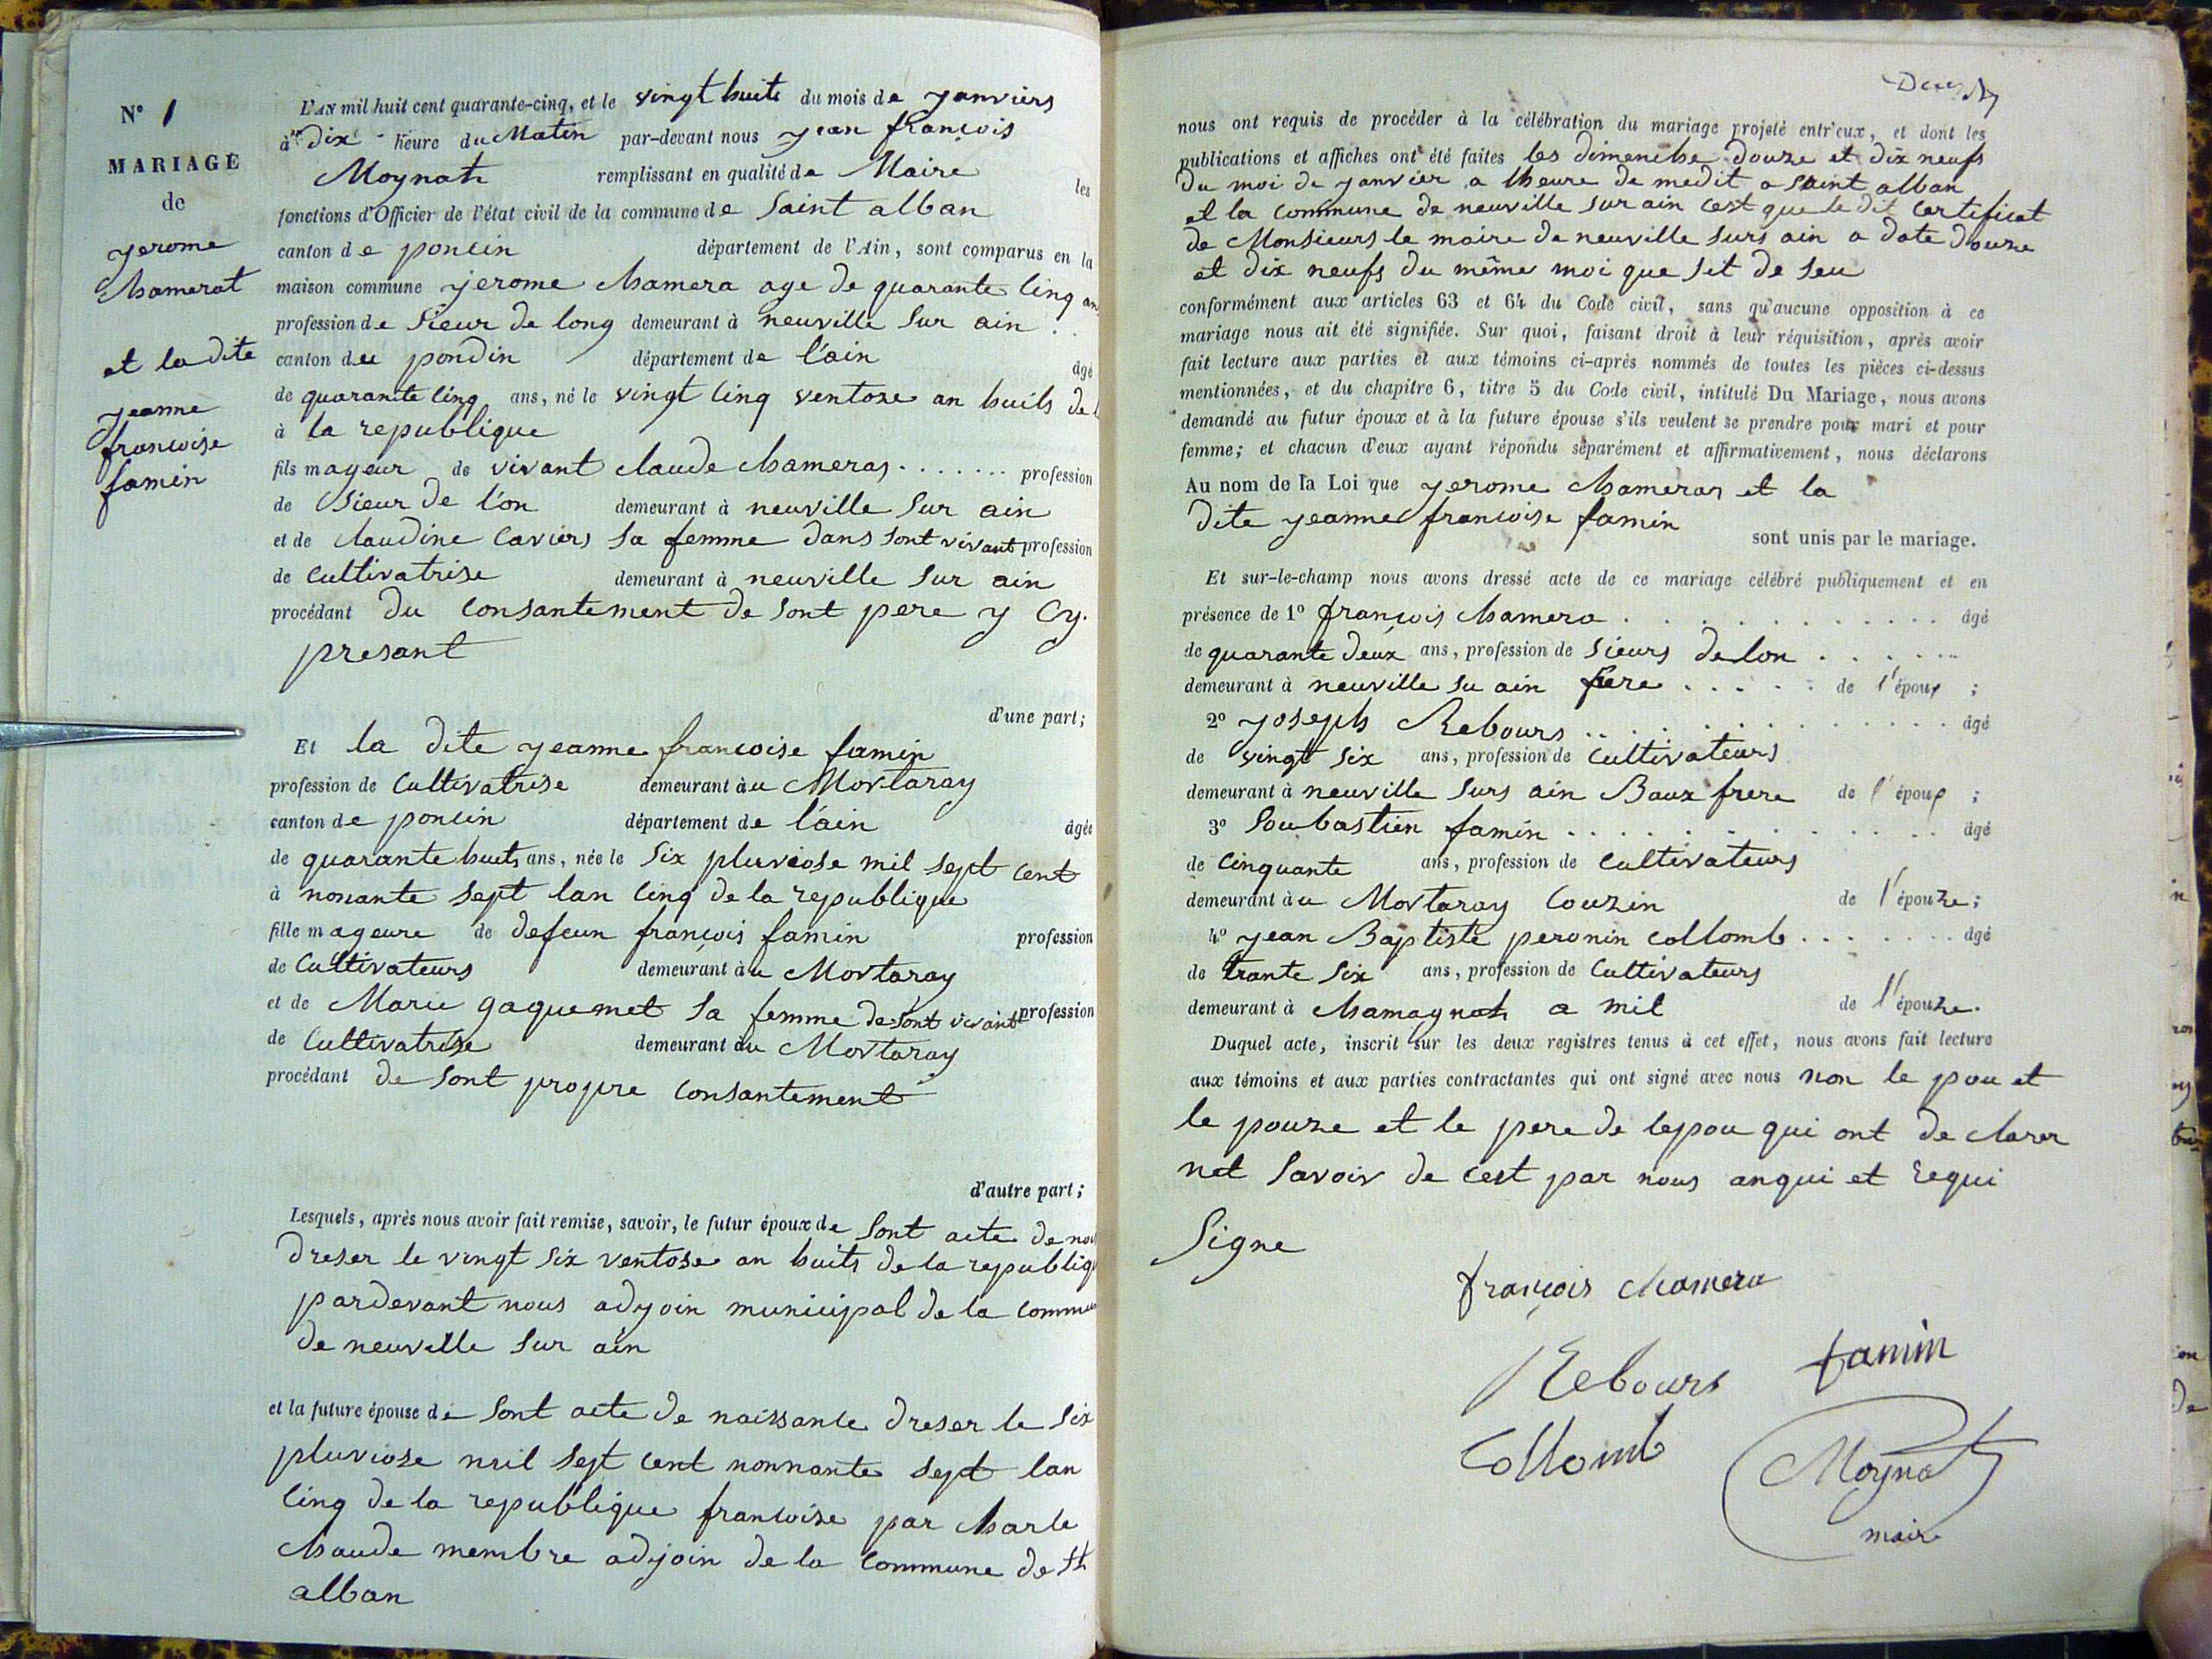 N° 1
MARIAGE
de
yerome
chamerat
et la dite
yeanne
francoise
famin
L'AN mil huit cent quarante-cinq, et le vingt huits du mois de yanviers
à dix heure du Matin par-devant nous yean françois
Moynat remplissant en qualité de Maire les
fonctions d'Officier de l'état civil de la commune de Saint alban
canton de poncin département de l'Ain, sont comparus en la
maison commune yerome chamera age de quarante cinq ans
profession de sieur de long demeurant à neuville sur ain
canton du pondin département de l'ain âgé
de quarante cinq ans, né le vingt cinq ventose an huits de l
à la republique
fils mageur de vivant claude chameras profession
de sieur de l'on demeurant à neuville sur ain
et de claudine caviers sa femme dans sont vivant profession
de cultivatrise demeurant à neuville sur ain
procédant du consantement de sont pere y cy.
presant
d'une part;
Et la dite yeanne francoise famin
profession de cultivatrise demeurant àu Mortaray
canton de poncin département de l'ain âgée
de quarante huits ans, née le six pluviose mil sept cent
à nonante sept lan cinq de la republique
fille mageure de defeun françois famin profession
de cultivateurs demeurant àu Mortaray
et de Marie gaquemet sa femme de sont vivant profession
de cultivatrise demeurant àu Mortaray
procédant de sont propre consantement
d'autre part;
Lesquels, après nous avoir fait remise, savoir, le futur époux de sont acte de nai
dreser le vingt six ventose an huits de la republiq
pardevant nous adyoin municipal de la commu
de neuville sur ain
et la future épouse de sont acte de naissance dreser le six
pluviose mil sept cent nonnante sept lan
cinq de la republique francoise par charle
chaude membre adjoin de la commune de st
alban
nous ont requis de procéder à la célébration du mariage projeté entr'eux, et dont les
publications et affiches ont été faites les dimenche douze et dix neufs
du moi de yanvier a lheure de medit a saint alban
et la commune de neuville sur ain cest que le dit certificat
de Monsieurs le maire de neuville surs ain a date douze
et dix neufs du même moi que sit de seu
conformément aux articles 63 et 64 du Code civil, sans qu'aucune opposition à ce
mariage nous ait été signifiée. Sur quoi, faisant droit à leur réquisition, après avoir
fait lecture aux parties et aux témoins ci-après nommés de toutes les pièces ci-dessus
mentionnées, et du chapitre 6, titre 5 du Code civil, intitulé Du Mariage, nous avons
demandé au futur époux et à la future épouse s'ils veulent se prendre pour mari et pour
femme; et chacun d'eux ayant répondu séparément et affirmativement, nous déclarons
Au nom de la Loi que yerome chameras et la
dite yeanne francoise famin
sont unis par le mariage.
Et sur-le-champ nous avons dressé acte de ce mariage célébré publiquement et en
présence de 1° françois chamera âgé
de quarante deux ans, profession de sieurs de lon
demeurant à neuville su ain frere de l'époux ;
2° yoseph Rebours âgé
de vingt six ans, profession de cultivateurs
demeurant à neuville surs ain Baux frere de l'époux ;
3° soubastien famin âgé
de cinquante ans, profession de cultivateurs
demeurant àu Mortaray couzin de l'épouze;
4° yean Baptiste peronin collomb âgé
de trante six ans, profession de cultivateurs
demeurant à chamagnat a mit de l'épouze.
Duquel acte, inscrit sur les deux registres tenus à cet effet, nous avons fait lecture
aux témoins et aux parties contractantes qui ont signé avec nous non le pou et
le pouze et le pere de lepou qui ont de clarer
net savoir de cest par nous anqui et requi
Signe
françois chamera
Rebours famin
Collomb Moynat
maire